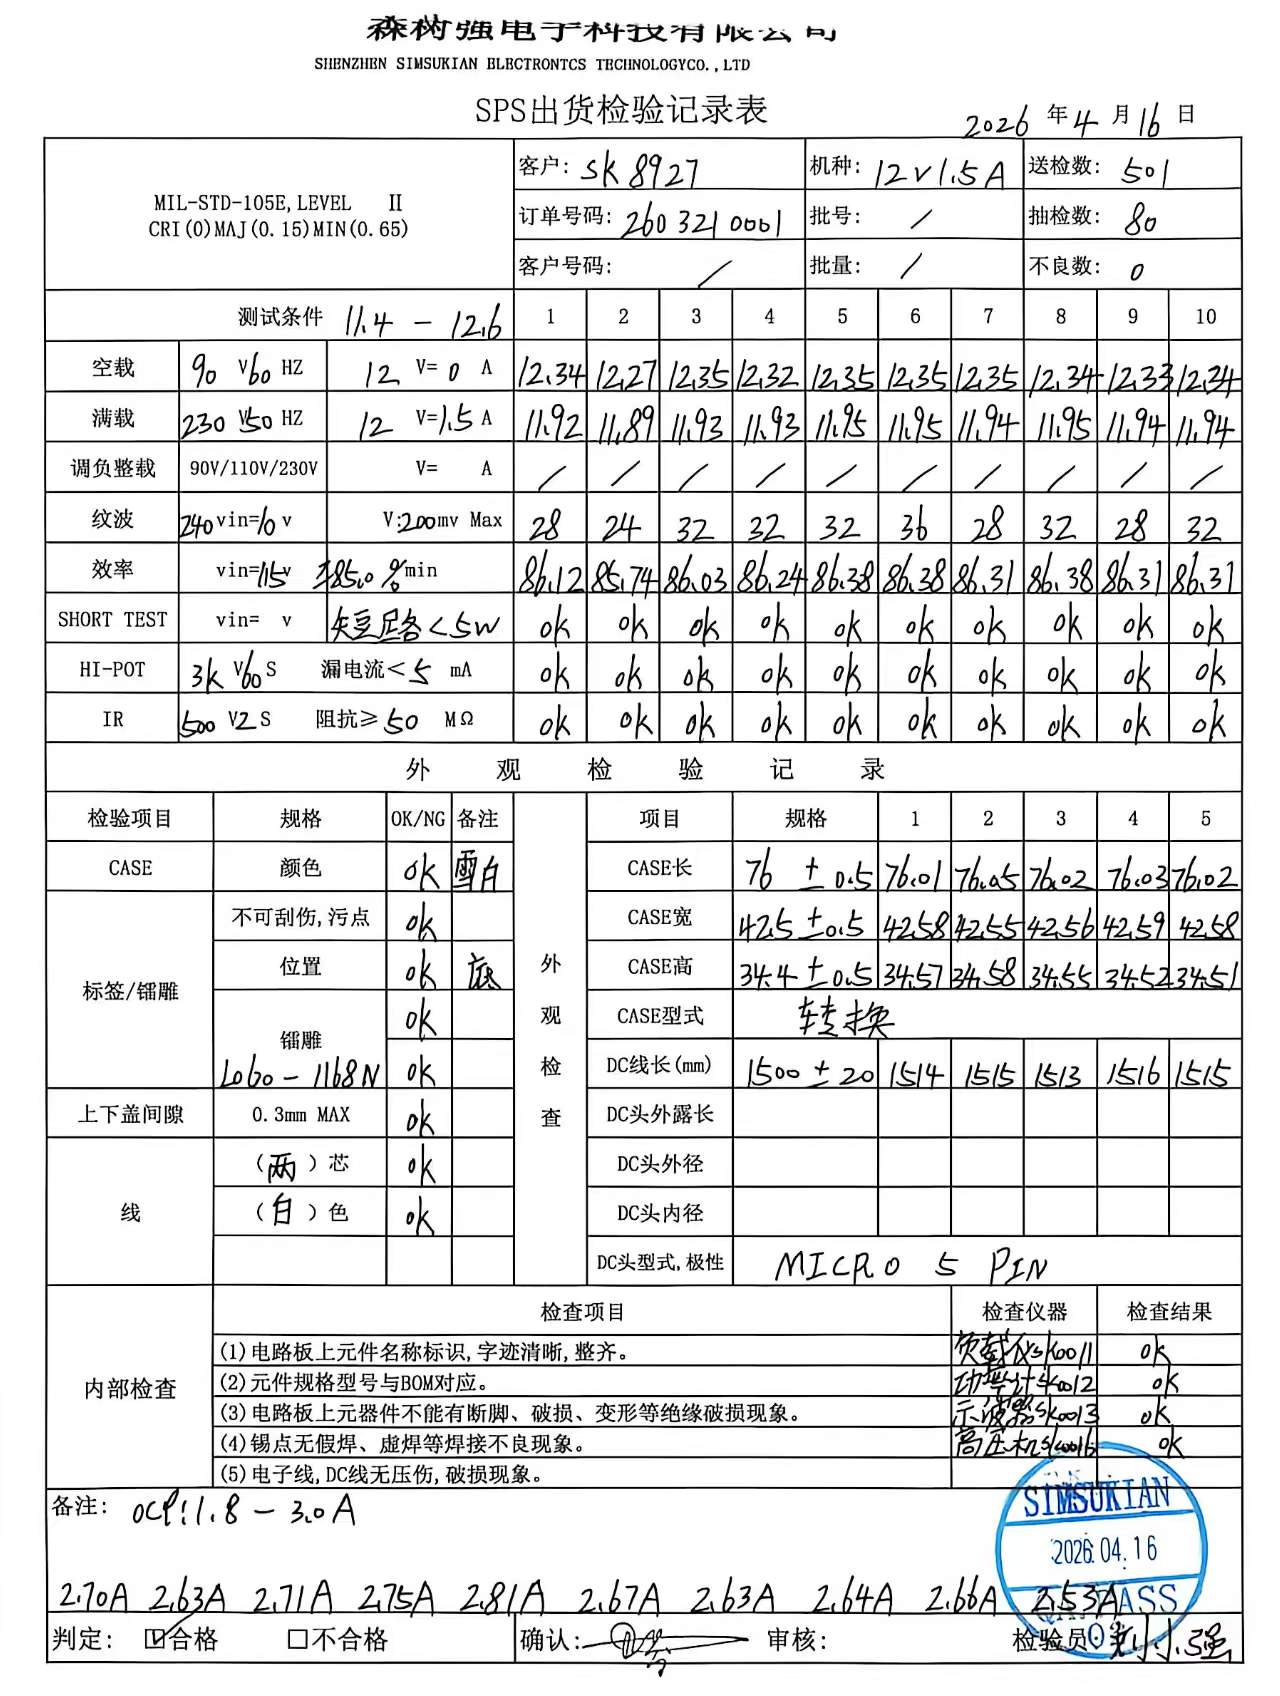 森树强电子科技有限公司
SHENZHEN SIMSUKIAN ELECTRONTCS TECHNOLOGYCO.,LTD
SPS出货检验记录表
2026 年 4 月 16 日
MIL-STD-105E,LEVEL Ⅱ
CRI(0)MAJ(0.15)MIN(0.65)
客户: SK8927 机种: 12V1.5A 送检数: 501
订单号码: 2603210001 批号: / 抽检数: 80
客户号码: / 批量: / 不良数: 0
测试条件 11.4 - 12.6 1 2 3 4 5 6 7 8 9 10
空载 90 V60 HZ 12 V= 0 A 12.34 12.27 12.35 12.32 12.35 12.35 12.35 12.34 12.33 12.34
满载 230 V50 HZ 12 V=1.5 A 11.92 11.89 11.93 11.93 11.95 11.95 11.94 11.95 11.94 11.94
调负整载 90V/110V/230V V= A / / / / / / / / / /
纹波 240vin=10 v V:200mv Max 28 24 32 32 32 36 28 32 28 32
效率 vin=115v 85.0%min 86.12 85.74 86.03 86.24 86.38 86.38 86.31 86.38 86.31 86.31
SHORT TEST vin= v 短路<5W OK OK OK OK OK OK OK OK OK OK
HI-POT 3K V60 S 漏电流<5 mA OK OK OK OK OK OK OK OK OK OK
IR 500 V2 S 阻抗≥50 MΩ OK OK OK OK OK OK OK OK OK OK
外观检验记录
检验项目 规格 OK/NG 备注 外观检查 项目 规格 1 2 3 4 5
CASE 颜色 OK 雪白 CASE长 76 ±0.5 76.01 76.05 76.02 76.03 76.02
标签/镭雕 不可刮伤,污点 OK CASE宽 42.5 ±0.5 42.58 42.55 42.56 42.59 42.58
位置 OK 底 CASE高 34.4 ±0.5 34.57 34.58 34.55 34.52 34.51
镭雕 OK CASE型式 转换
L060-1168N OK DC线长(mm) 1500 ±20 1514 1515 1513 1516 1515
上下盖间隙 0.3mm MAX OK DC头外露长
线 (两)芯 OK DC头外径
(白)色 OK DC头内径
DC头型式,极性 MICRO 5 PIN
内部检查 检查项目 检查仪器 检查结果
(1)电路板上元件名称标识,字迹清晰,整齐。 负载仪SK0011 OK
(2)元件规格型号与BOM对应。 功率计SK0012 OK
(3)电路板上元器件不能有断脚、破损、变形等绝缘破损现象。 示波器SK0013 OK
(4)锡点无假焊、虚焊等焊接不良现象。 高压机SK0016 OK
(5)电子线,DC线无压伤,破损现象。
备注: OCP:1.8-3.0A
SIMSUKIAN
2026.04.16
PASS
2.70A 2.63A 2.71A 2.75A 2.81A 2.67A 2.63A 2.64A 2.66A 2.53A
判定: ☑合格 □不合格 确认: 审核: 检验员: 刘小强